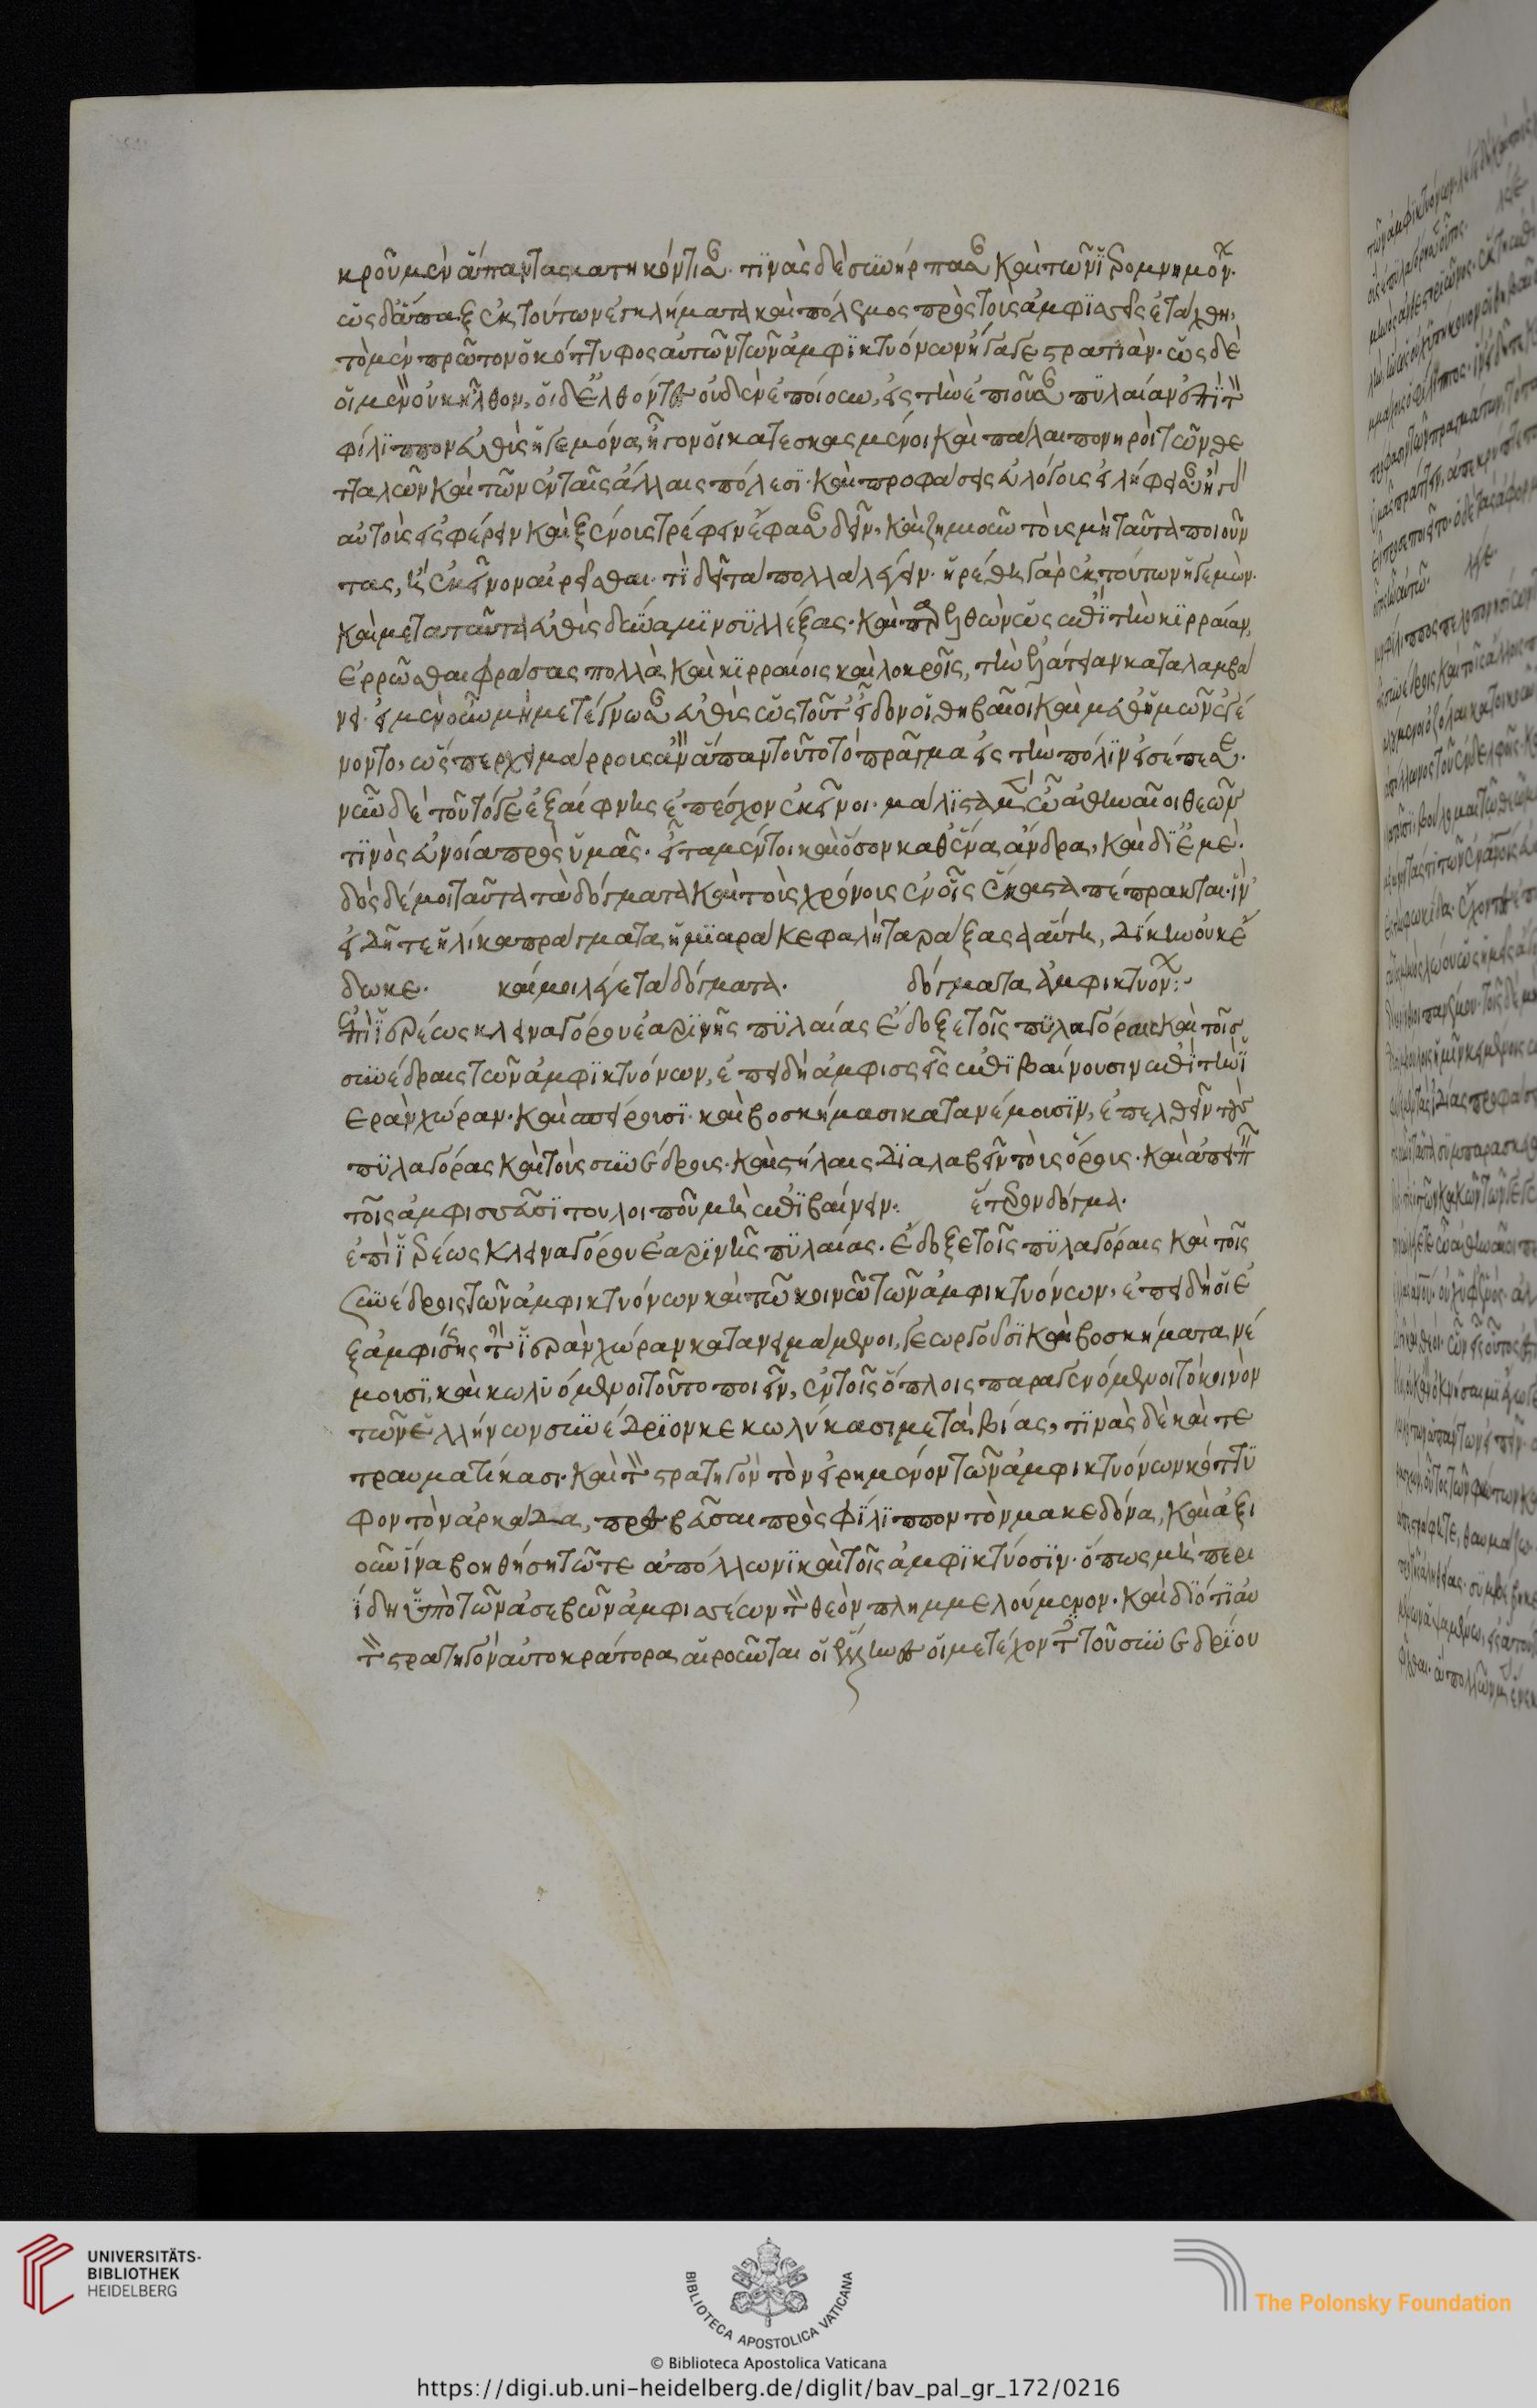 κροῦ μὲν ἅπαντας κατηκόντισαν· τινὰς δὲ συνήρπασαν καὶ τῶν ἱερομνημόνων·
ὡς δ' ἅπαξ ἐκ τούτων ἐγκλήματα καὶ πόλεμος πρὸς τοὺς ἀμφισσεῖς ἐταράχθη,
τὸ μὲν πρῶτον ὁ κόττυφος αὐτῶν τῶν ἀμφικτυόνων ἤγαγε στρατιάν· ὡς δὲ
οἱ μὲν οὐκ ἦλθον, οἱ δ' ἐλθόντες οὐδὲν ἐποίουν, εἰς τὴν ἐπιοῦσαν πυλαίαν ἐπὶ τὸν
φίλιππον εὐθὺς ἡγεμόνα ἦγον οἱ κατεσκευασμένοι καὶ πάλαι πονηροὶ τῶν θε
τταλῶν καὶ τῶν ἐν ταῖς ἄλλαις πόλεσι· καὶ προφάσεις εὐλόγους εἰλήφεσαν ἢ γὰρ
αὐτοὺς εἰσφέρειν καὶ ξένους τρέφειν ἔφασαν δεῖν, καὶ ζημιοῦν τοὺς μὴ ταῦτα ποιοῦν
τας, ἢ ἐκεῖνον αἱρεῖσθαι· τί δεῖ τὰ πολλὰ λέγειν· ἡρέθη γὰρ ἐκ τούτων ἡγεμών·
καὶ μετὰ ταῦτα εὐθὺς δύναμιν συλλέξας· καὶ παρελθὼν ὡς ἐπὶ τὴν κιρραίαν,
ἐρρῶσθαι φράσας πολλὰ καὶ κιρραίοις καὶ λοκροῖς, τὴν ἐλάτειαν καταλαμβά
νει· εἰ μὲν οὖν μὴ μετέγνωσαν εὐθὺς ὡς τοῦτ' εἶδον οἱ θηβαῖοι καὶ μεθ' ἡμῶν ἐγέ
νοντο, ὥσπερ χειμάρρους ἂν ἅπαν τοῦτο τὸ πρᾶγμα εἰς τὴν πόλιν εἰσέπεσε·
νῦν δὲ τοῦτό γε ἐξαίφνης ἐπέσχον ἐκεῖνοι· μάλιστα μὲν ὦ ἄνδρες ἀθηναῖοι θεῶν
τινὸς εὐνοίᾳ πρὸς ὑμᾶς· εἶτα μέντοι καὶ ὅσον καθ' ἕνα ἄνδρα, καὶ δι' ἐμέ·
δὸς δέ μοι ταῦτα τὰ δόγματα καὶ τοὺς χρόνους ἐν οἷς ἕκαστα πέπρακται· ἵν'
εἰδῆτε ἡλίκα πράγματα ἡ μιαρὰ κεφαλὴ ταράξασα αὕτη, δίκην οὐκ ἔ
δωκε· καί μοι λέγε τὰ δόγματα· δόγματα ἀμφικτυόνων:
ἐπὶ ἱερέως κλειναγόρου ἐαρινῆς πυλαίας ἔδοξε τοῖς πυλαγόραις καὶ τοῖς
συνέδροις τῶν ἀμφικτυόνων, ἐπειδὴ ἀμφισσεῖς ἐπιβαίνουσιν ἐπὶ τὴν ἱ
ερὰν χώραν· καὶ σπείρουσι· καὶ βοσκήμασι κατανέμουσιν, ἐπελθεῖν τοὺς
πυλαγόρας καὶ τοὺς συνέδρους· καὶ στήλαις διαλαβεῖν τοὺς ὅρους· καὶ ἀπειπεῖν
τοῖς ἀμφισσεῦσι τοῦ λοιποῦ μὴ ἐπιβαίνειν: ἕτερον δόγμα·
ἐπὶ ἱερέως κλειναγόρου ἐαρινῆς πυλαίας· ἔδοξε τοῖς πυλαγόραις καὶ τοῖς
συνέδροις τῶν ἀμφικτυόνων καὶ τῷ κοινῷ τῶν ἀμφικτυόνων, ἐπειδὴ οἱ ἐ
ξ ἀμφίσσης τὴν ἱερὰν χώραν κατανειμάμενοι, γεωργοῦσι καὶ βοσκήματα νέ
μουσι, καὶ κωλυόμενοι τοῦτο ποιεῖν, ἐν τοῖς ὅπλοις παραγενόμενοι τὸ κοινὸν
τῶν ἑλλήνων συνέδριον κεκωλύκασι μετὰ βίας, τινὰς δὲ καὶ τε
τραυματίκασι· καὶ τὸν στρατηγὸν τὸν εἰρημένον τῶν ἀμφικτυόνων κόττυ
φον τὸν ἀρκάδα, πρεσβεῦσαι πρὸς φίλιππον τὸν μακεδόνα, καὶ ἀξι
οῦν ἵνα βοηθήσῃ τῷ τε ἀπόλλωνι καὶ τοῖς ἀμφικτύοσιν· ὅπως μὴ περι
ίδῃ ὑπὸ τῶν ἀσεβῶν ἀμφισσέων τὸν θεὸν πλημμελούμενον· καὶ διότι αὐ
τὸν στρατηγὸν αὐτοκράτορα αἱροῦνται οἱ ἕλληνες οἱ μετέχοντες τοῦ συνεδρίου
UNIVERSITÄTS-
BIBLIOTHEK
HEIDELBERG
BIBLIOTECA APOSTOLICA VATICANA
The Polonsky Foundation
© Biblioteca Apostolica Vaticana
https://digi.ub.uni-heidelberg.de/diglit/bav_pal_gr_172/0216